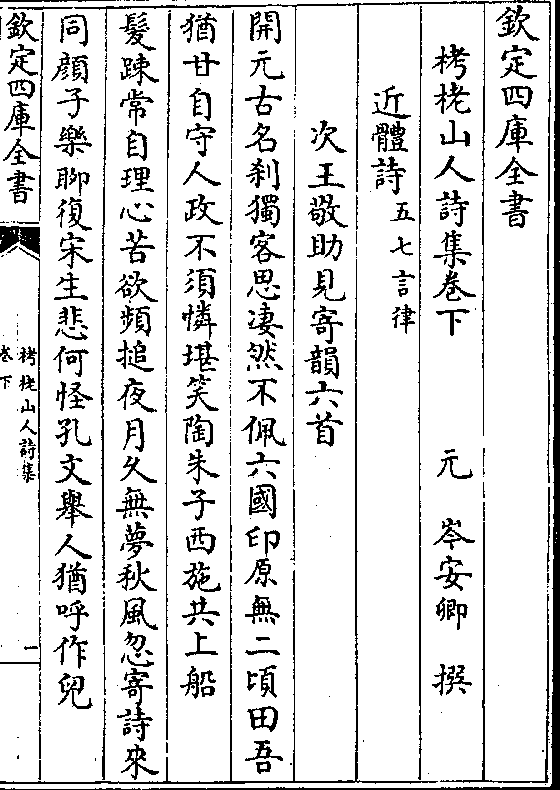 欽定四庫全書
栲栳山人詩集卷下
元　岑安卿　撰
近體詩 五七言律
次王敬助見寄韻六首
開元古名刹獨客思凄然不佩六國印原無二頃田吾
猶甘自守人政不須憐堪笑陶朱子西施共上船
髮踈常自理心苦欲頻搥夜月久無夢秋風忽寄詩來
同顔子樂聊復宋生悲何怪孔文舉人猶呼作兒
欽定四庫全書
栲栳山人詩集
卷下
一